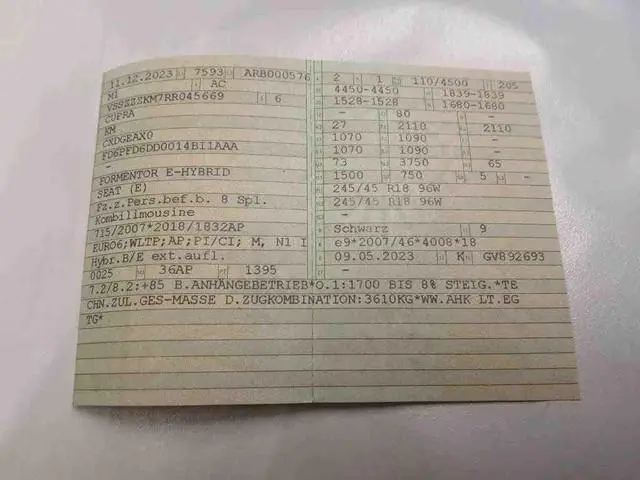 11.12.2023 7593 ARB000576
M1 AC
VSSZZZKM7RR045669 6
CUPRA
KM
CXDGEAX0
FD6PFD6DD0014BI1AAA
FORMENTOR E-HYBRID
SEAT (E)
Fz.z.Pers.bef.b. 8 Spl.
Kombilimousine
715/2007*2018/1832AP
EURO6;WLTP;AP;PI/CI; M, N1 I
Hybr.B/E ext.aufl.
0025 36AP 1395
2 1 110/4500 205
4450-4450 1839-1839
1528-1528 1680-1680
- 80 -
27 2110 2110
1070 1090 -
1070 1090 -
73 3750 65
1500 750 5 -
245/45 R18 96W
245/45 R18 96W
-
Schwarz 9
e9*2007/46*4008*18
09.05.2023 K GV892693
- - -
7.2/8.2:+85 B.ANHÄNGEBETRIEB*O.1:1700 BIS 8% STEIG.*TE
CHN.ZUL.GES-MASSE D.ZUGKOMBINATION:3610KG*WW.AHK LT.EG
TG*